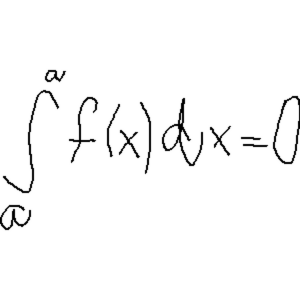 ∫ₐᵃ f(x)dx=0